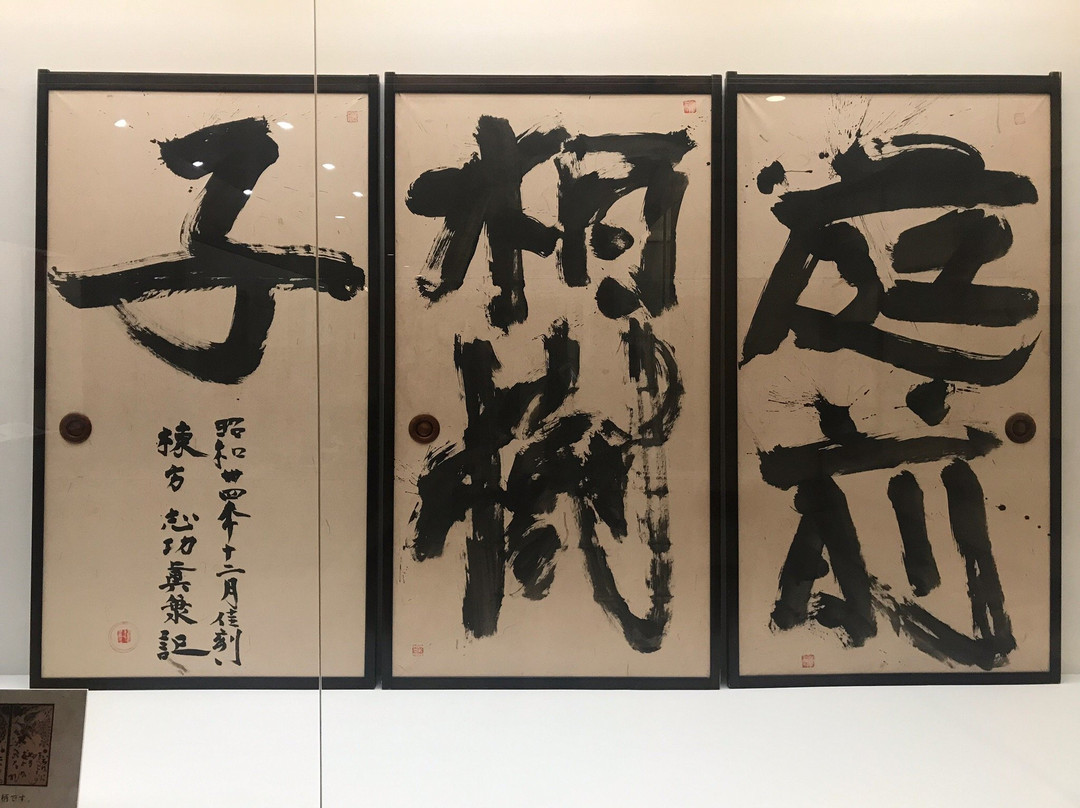 庭前
栢樹
子
昭和卅四年十二月佳刻
棟方志功眞記
です。